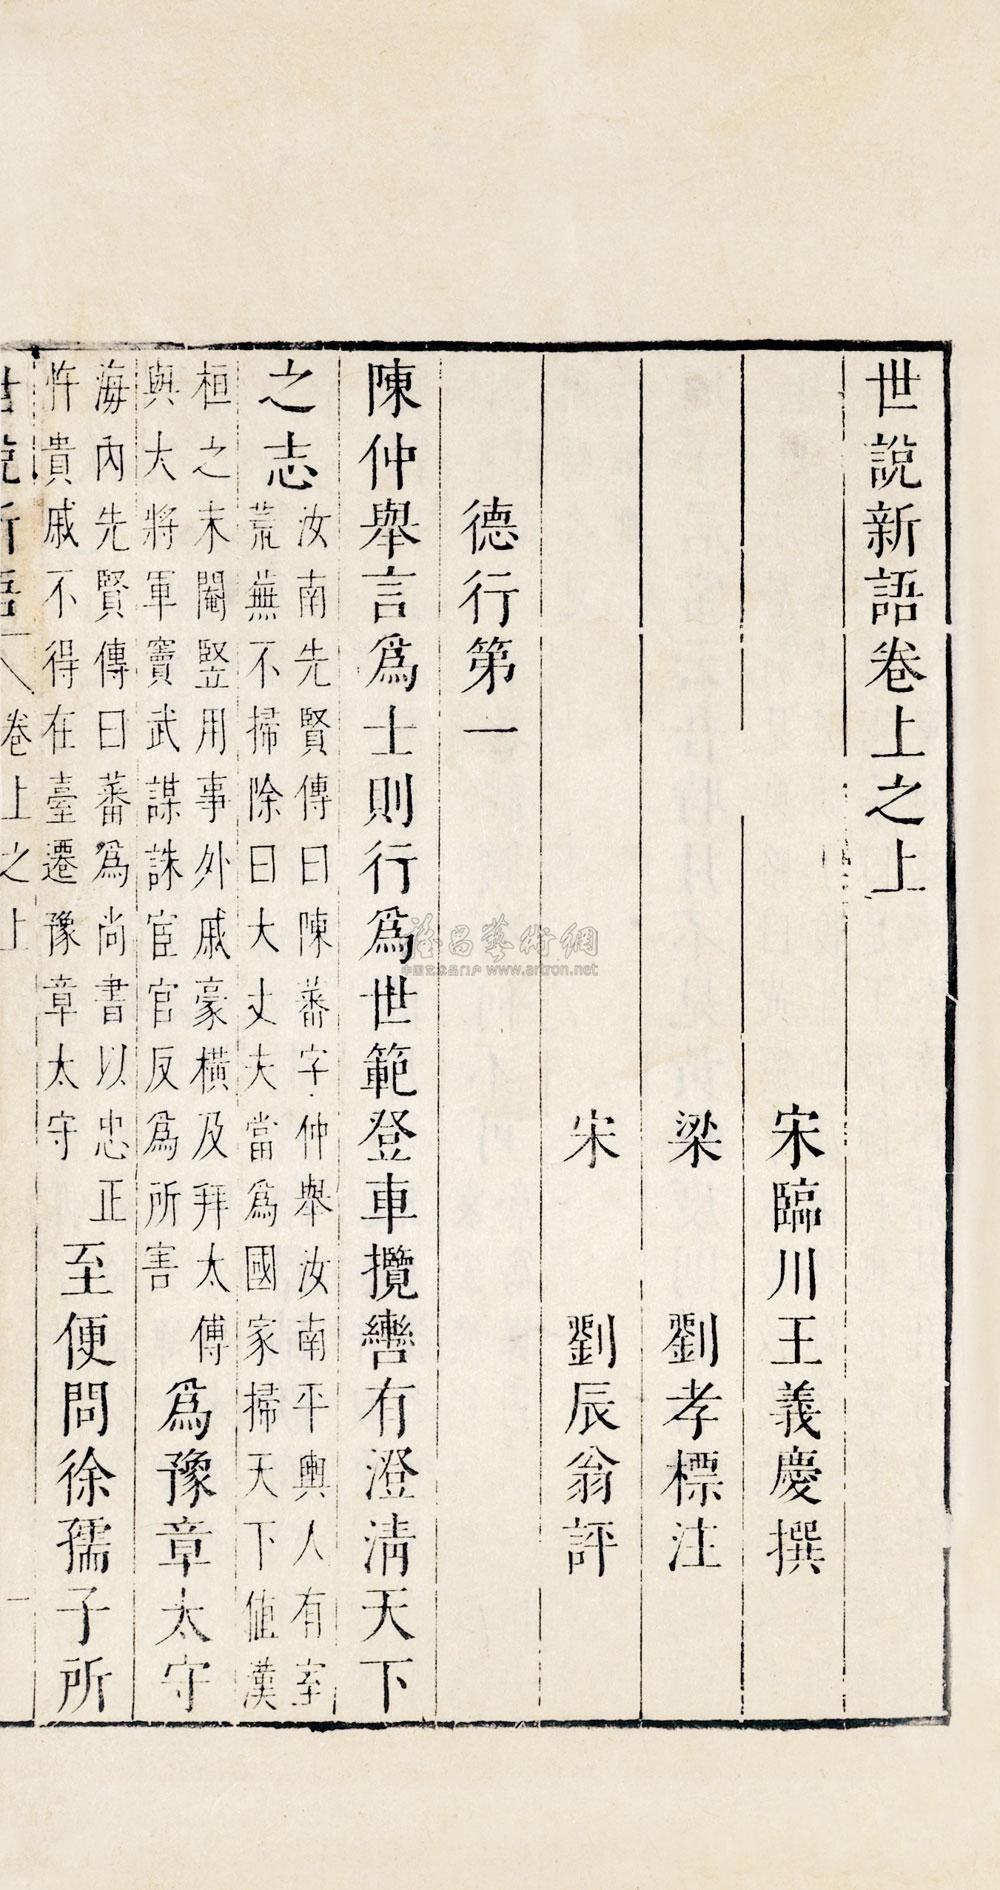 世說新語卷上之上
宋臨川王義慶撰
梁　劉孝標注
宋　劉辰翁評
德行第一
陳仲舉言爲士則行爲世範登車攬轡有澄清天下
之志
汝南先賢傳曰陳蕃字仲舉汝南平輿人有室
荒蕪不掃除曰大丈夫當爲國家掃天下值漢
桓之末閹豎用事外戚豪橫及拜太傅
與大將軍竇武謀誅宦官反爲所害
爲豫章太守
海內先賢傳曰蕃爲尚書以忠正
忤貴戚不得在臺遷豫章太守
至便問徐孺子所
世說新語
卷上之上
一
www.artron.net